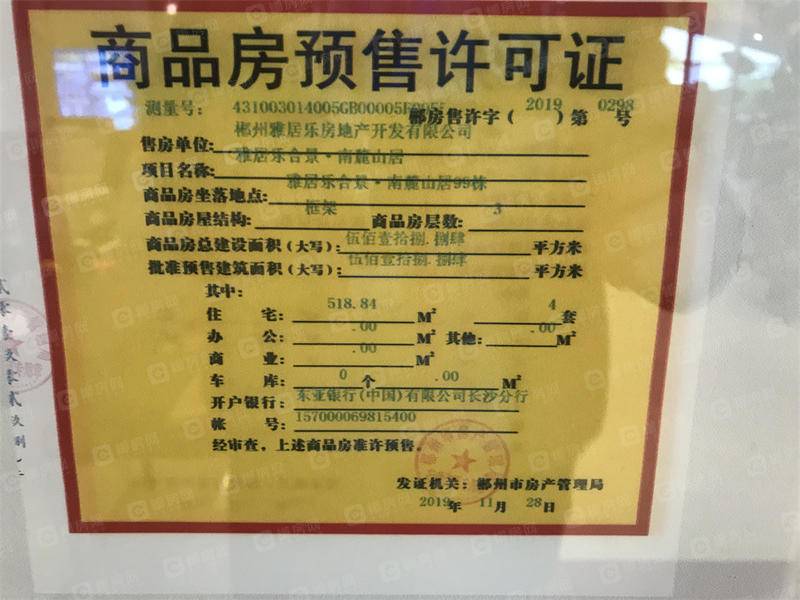 商品房预售许可证
测量号: 431003014005GB00005F005
郴房售许字( 2019 )第 0298 号
售房单位: 郴州雅居乐房地产开发有限公司
项目名称: 雅居乐合景·南麓山居
商品房坐落地点: 雅居乐合景·南麓山居99栋
商品房屋结构: 框架 商品房层数: 3
商品房总建设面积(大写): 伍佰壹拾捌.捌肆 平方米
批准预售建筑面积(大写): 伍佰壹拾捌.捌肆 平方米
其中:
住 宅: 518.84 M² 4 套
办 公: .00 M² 其他: .00 M²
商 业: .00 M²
车 库: 0 个 .00 M²
开户银行: 东亚银行(中国)有限公司长沙分行
帐 号: 157000069815400
经审查,上述商品房准许预售。
发证机关: 郴州市房产管理局
2019年 11月 28日